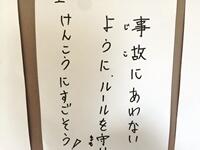 事故にあわない
じこ
ように、ルールを守り
まも
けんこうにすごそう!